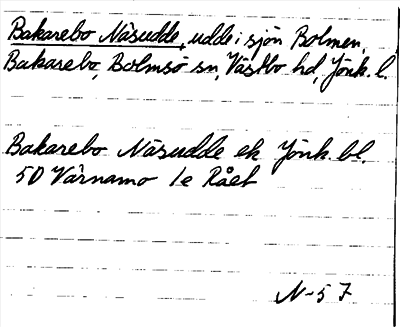 Bakarebo Näsudde, udde i sjön Bolmen,
Bakarebo, Bolmsö sn, Västbo hd, Jönk. l.
Bakarebo Näsudde ek Jönk. bl.
5D Värnamo 1e Rået
N-57